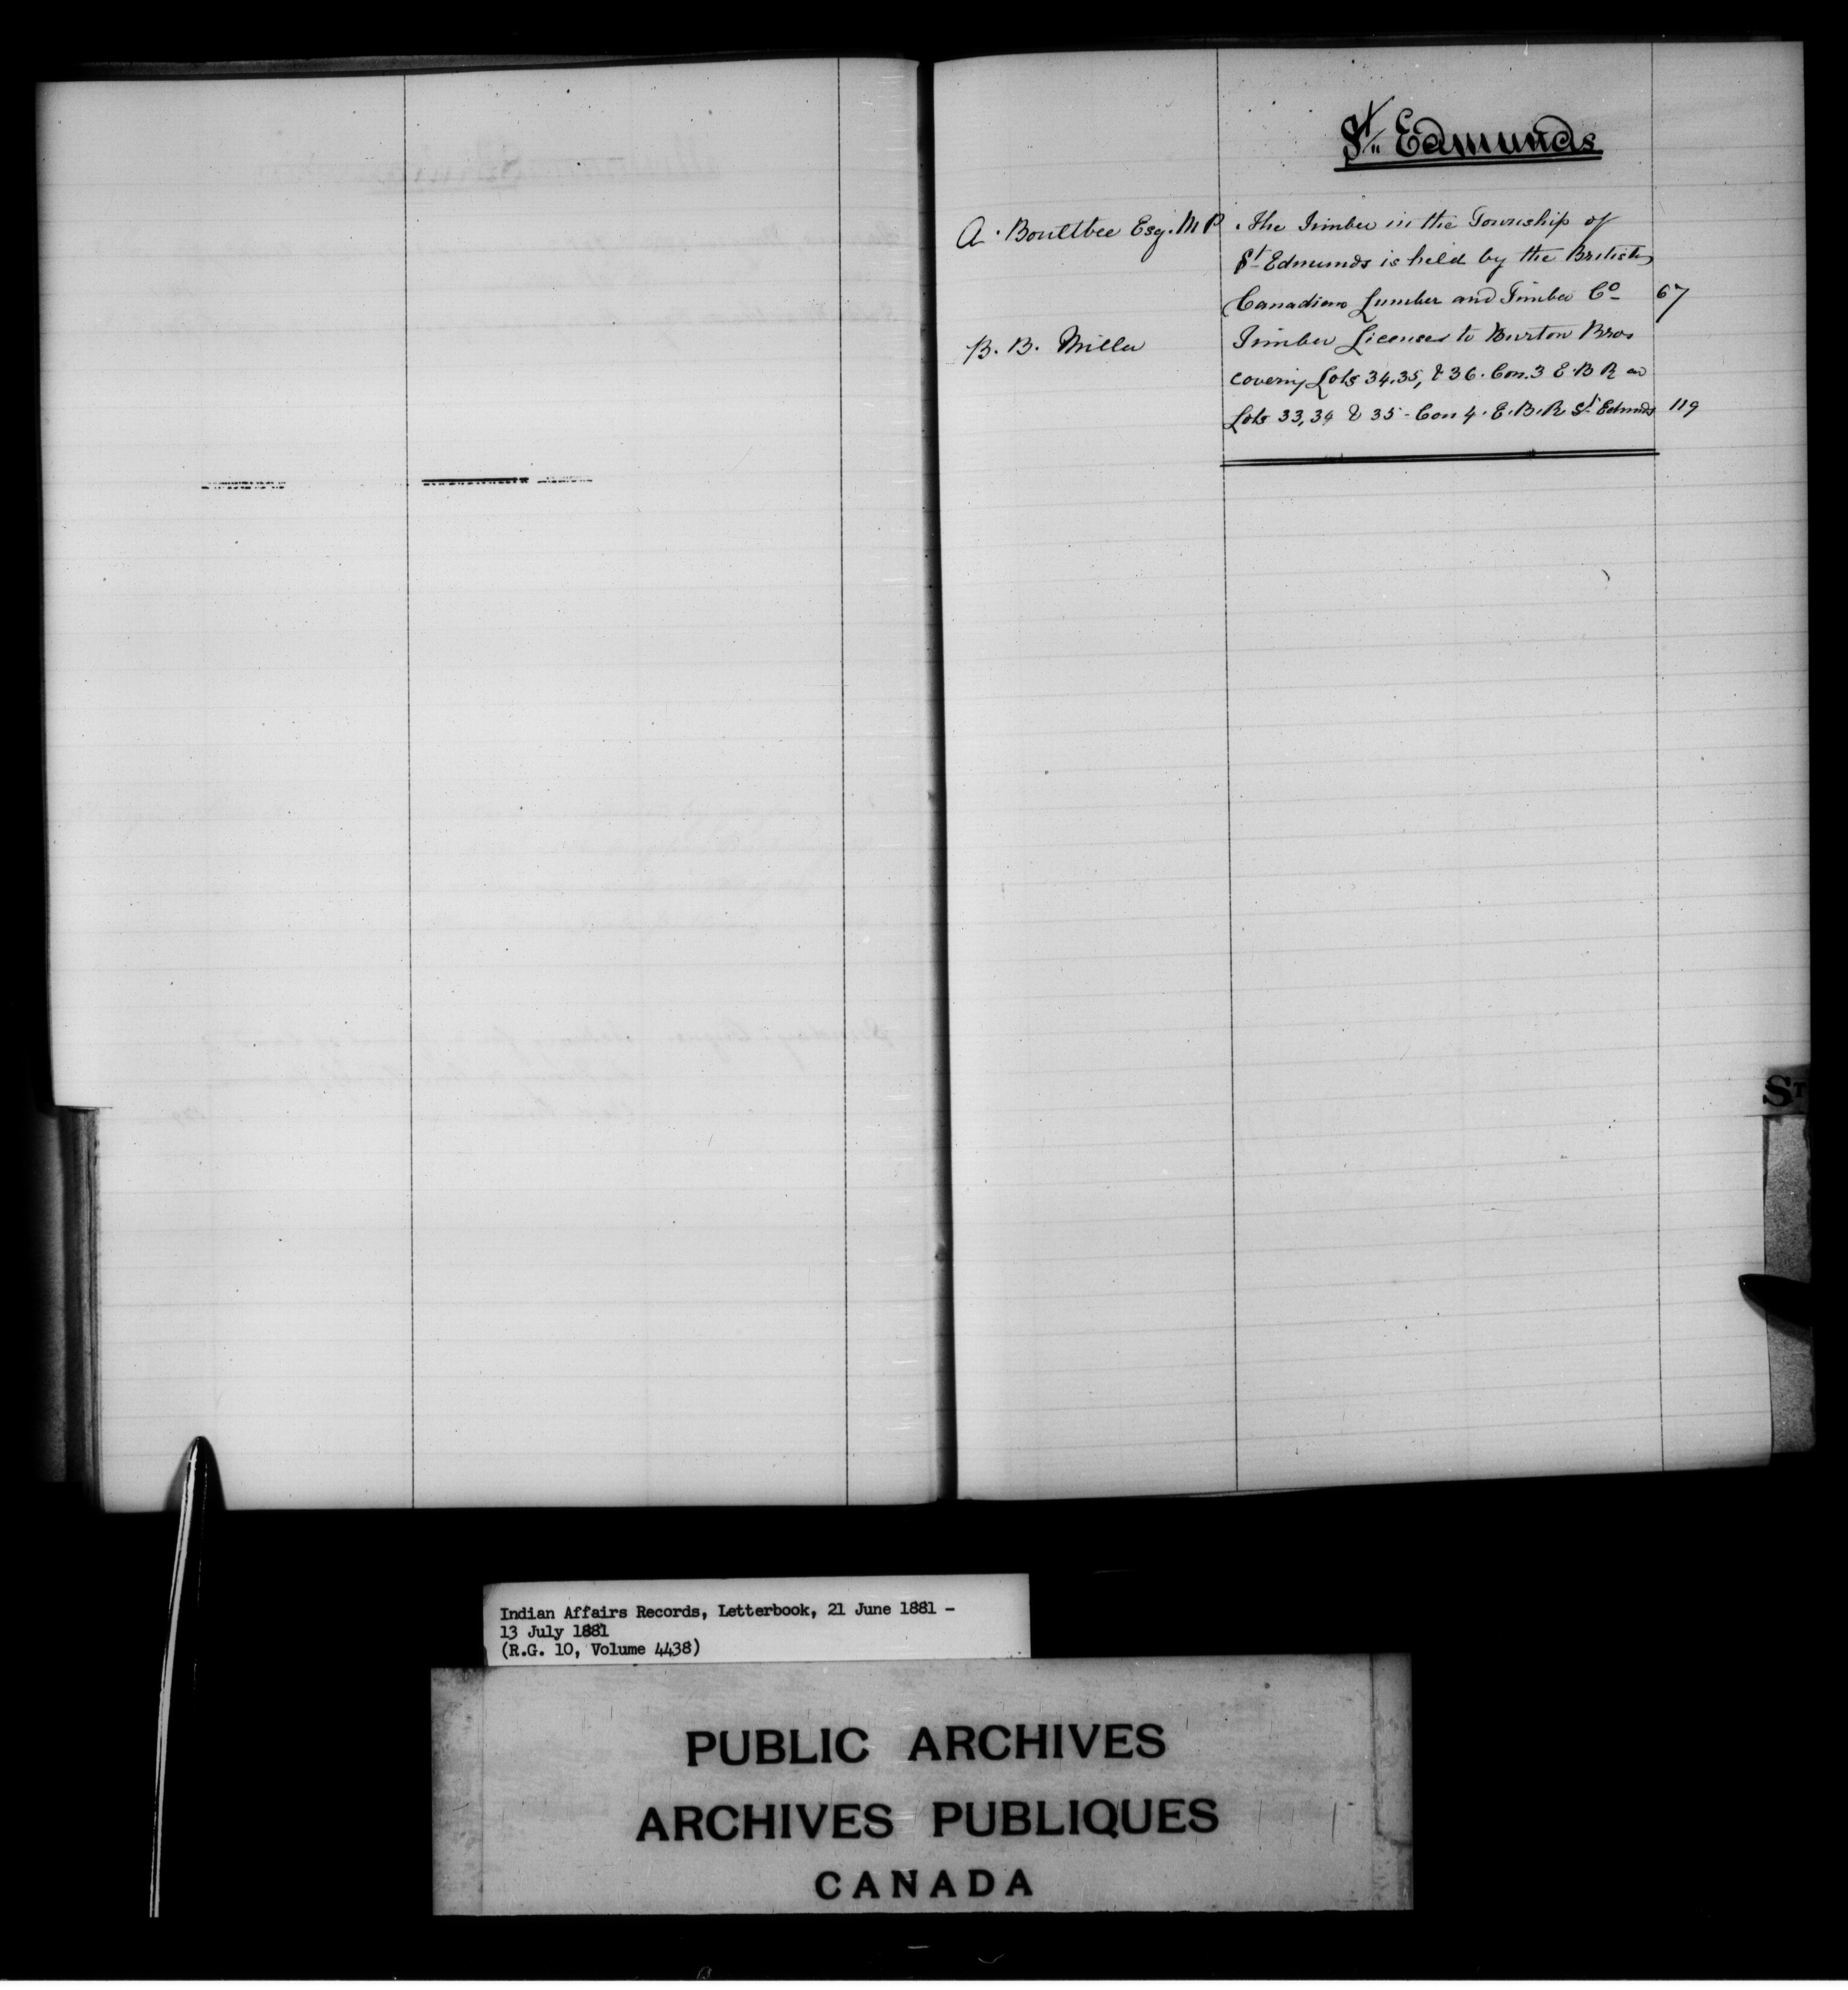 St. Edmunds
A. Boultbee Esq. M P. The Timber in the Township of
St Edmunds is held by the British
Canadian Lumber and Timber Co 67
B. B. Miller Timber Licenses to Burton Bros
covering Lots 34, 35, & 36. Con. 3 E. B R and
Lots 33, 34 & 35 - Con 4. E. B. R. St Edmunds 119
ST
Indian Affairs Records, Letterbook, 21 June 1881 -
13 July 1881
(R.G. 10, Volume 4438)
PUBLIC ARCHIVES
ARCHIVES PUBLIQUES
CANADA